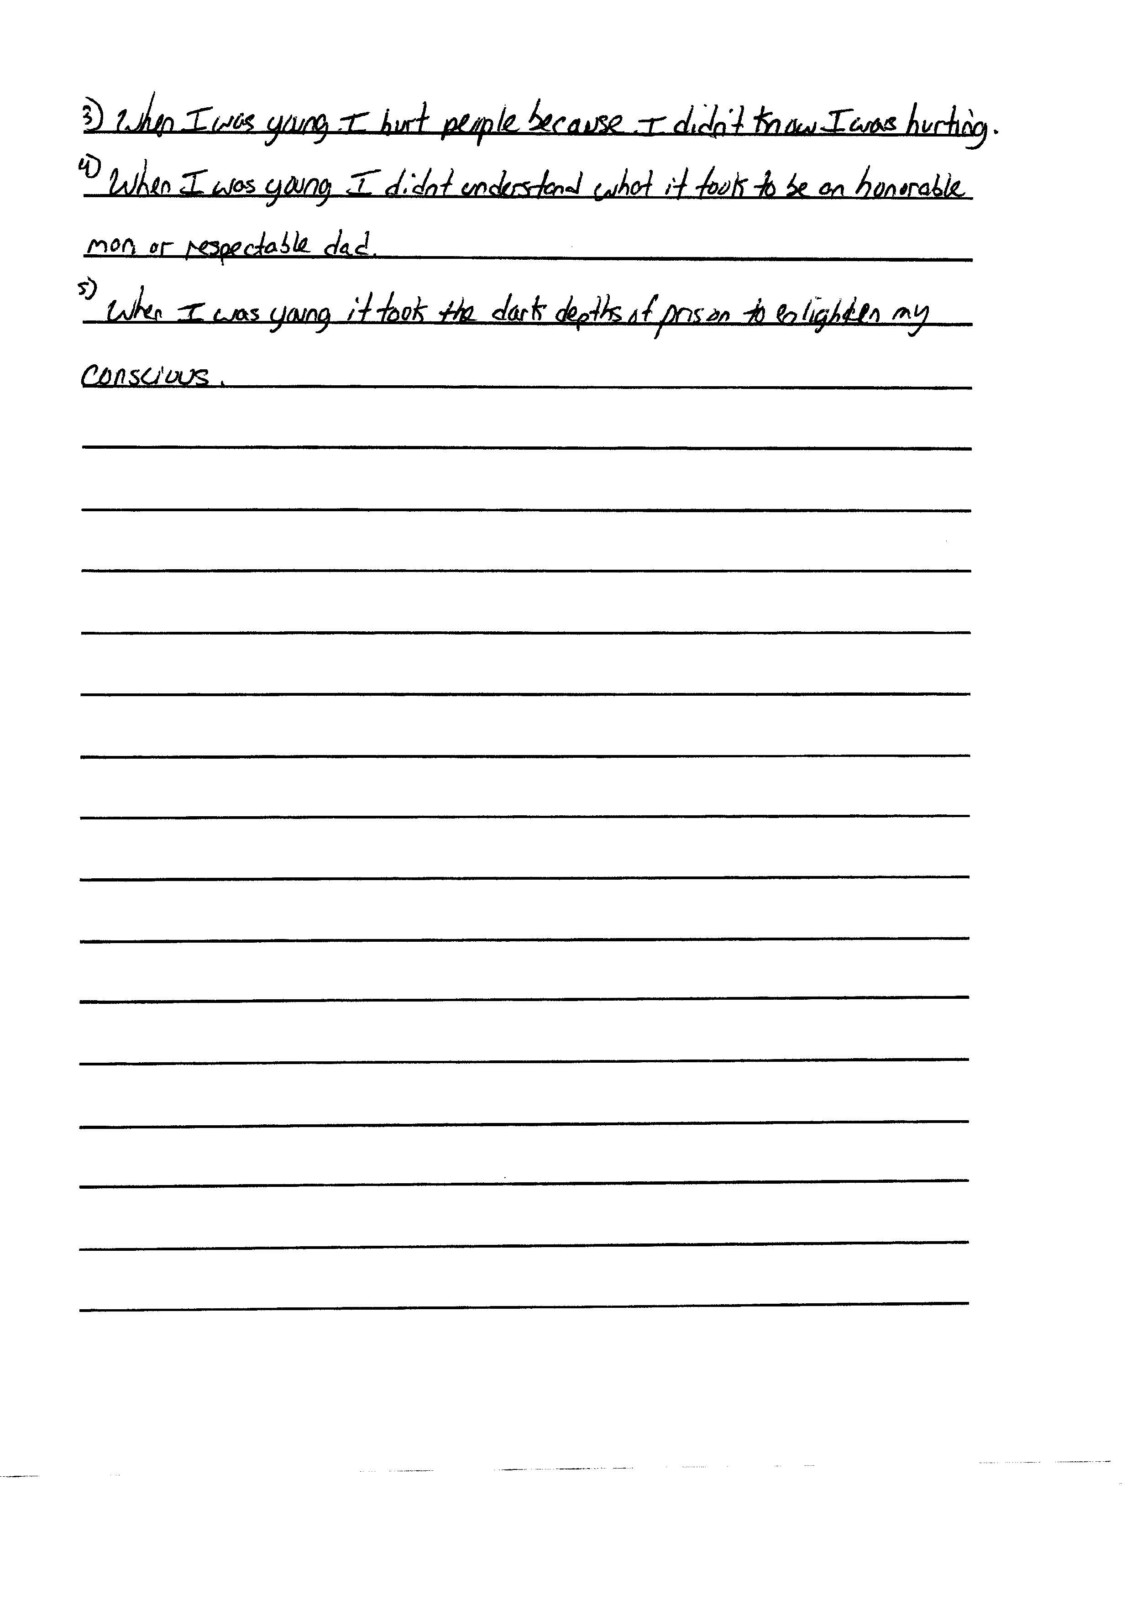 3) When I was young I hurt people because I didn't know I was hurting.
4) When I was young I didnt understand what it took to be an honorable
man or respectable dad.
5) When I was young it took the dark depths of prison to enlighten my
conscious.